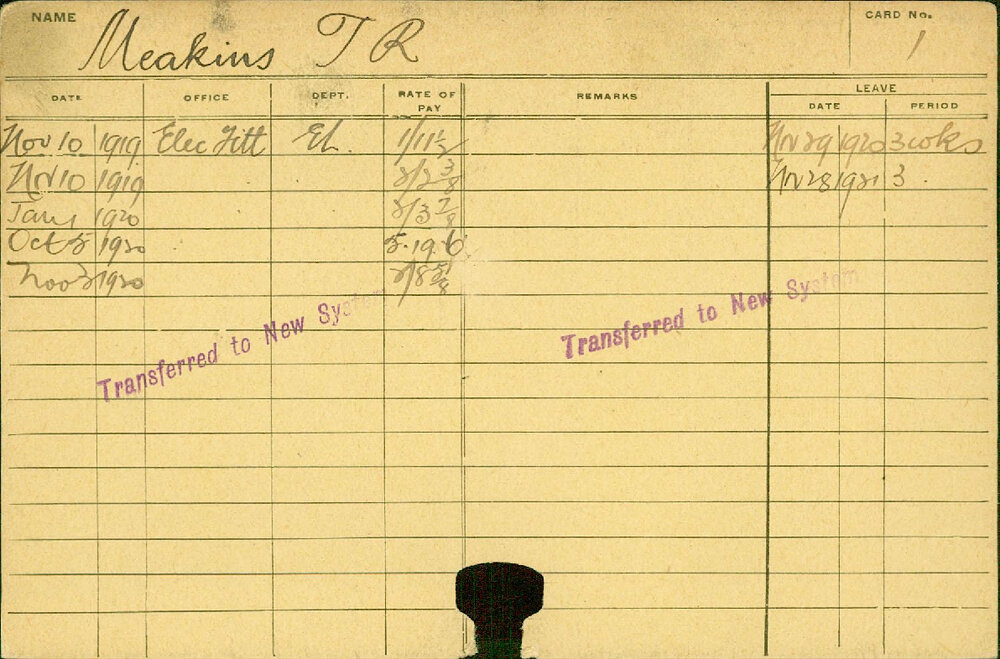 NAME Meakins T R CARD No. 1
DATE OFFICE DEPT. RATE OF PAY REMARKS LEAVE
DATE PERIOD
Nov 10 1919 Elec Fitt El. 1/11½ Nov 29 1920 3 wks
Nov 10 1919 2/2 3/8 Nov 28 1921 3
Jan 1 1920 2/3 7/8
Oct 5 1920 5.19.6
Nov 3 1920
Transferred to New System
Transferred to New System